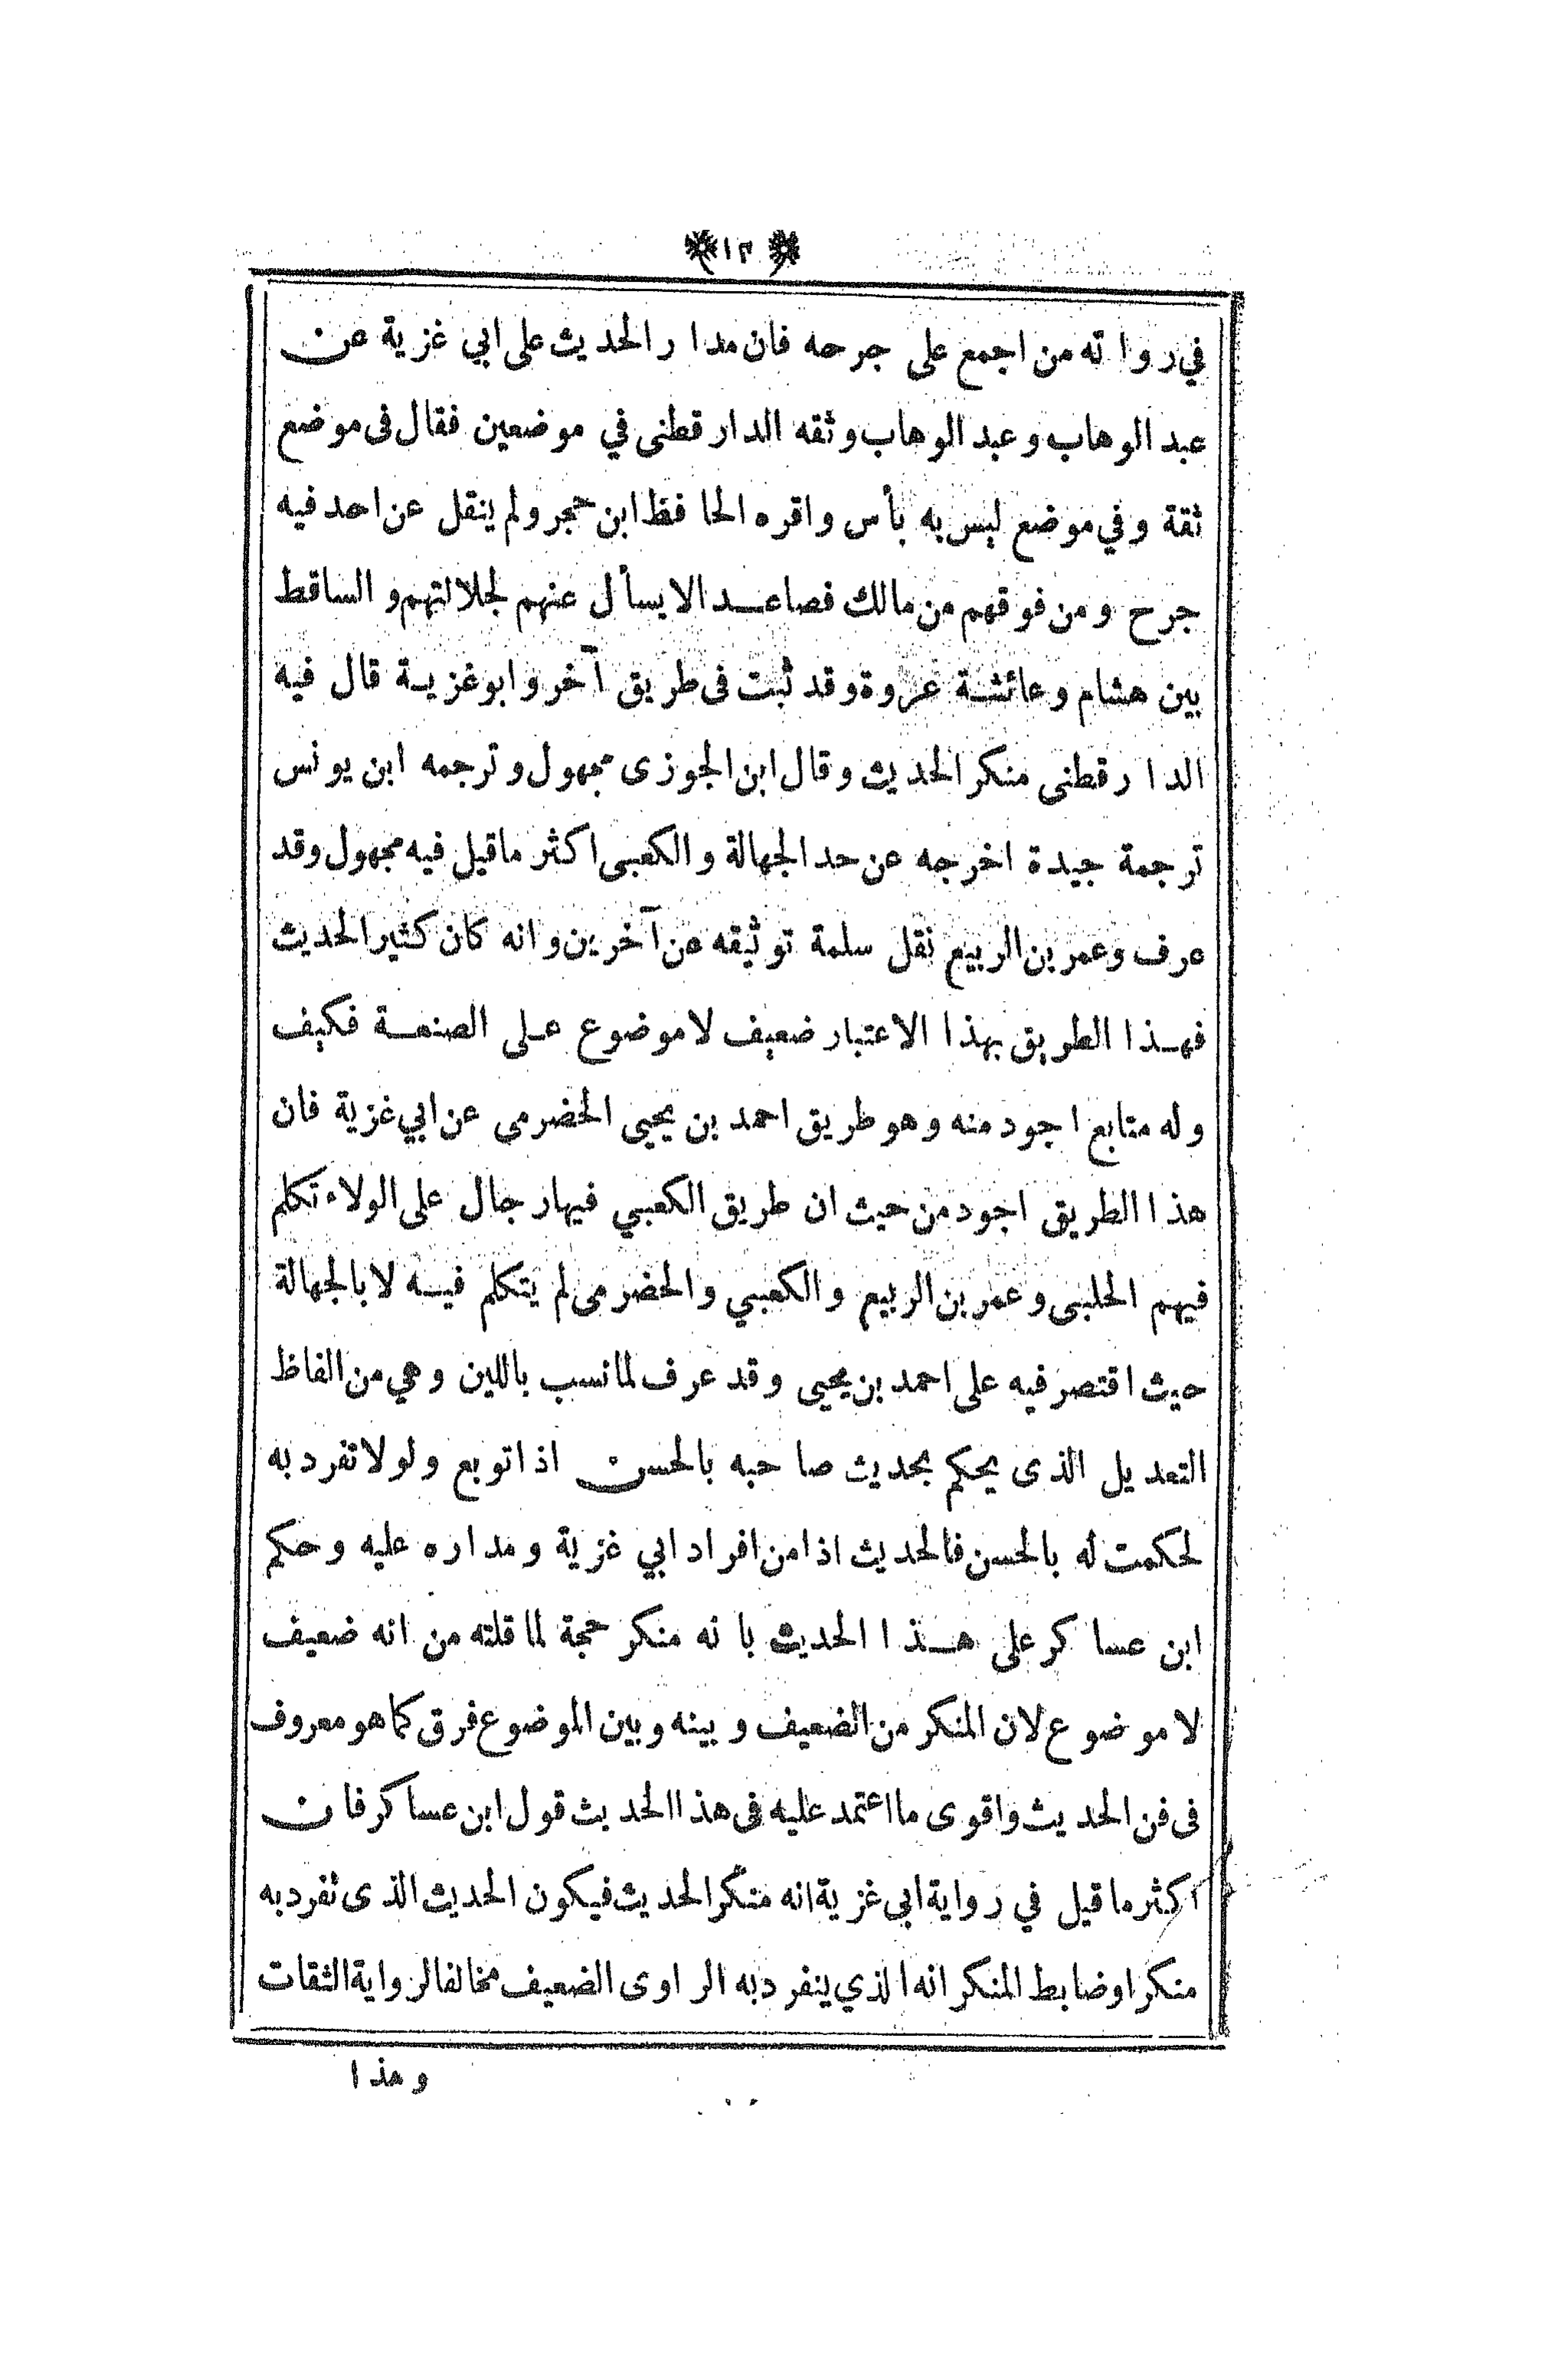 ١٢
في رواته من اجمع على جرحه فان مدار الحديث على ابي غزية عن
عبد الوهاب و عبد الوهاب وثقه الدارقطنى في موضعين فقال فى موضع
ثقة وفي موضع ليس به بأس واقره الحافظ ابن حجر ولم ينقل عن احد فيه
جرح ومن فوقهم من مالك فصاعدا لا يسأل عنهم لجلالتهم و الساقط
بين هشام وعائشة عروة وقد ثبت فى طريق آخر وابو غزية قال فيه
الدارقطنى منكر الحديث وقال ابن الجوزى مجهول وترجمه ابن يونس
ترجمة جيدة اخرجه عن حد الجهالة والكعبى اكثر ماقيل فيه مجهول وقد
عرف وعمر بن الربيع نقل سلمة توثيقه عن آخرين وانه كان كثير الحديث
فهذا الطريق بهذا الاعتبار ضعيف لا موضوع على الصنعة فكيف
وله متابع اجود منه وهو طريق احمد بن يحيى الحضرمي عن ابي غزية فان
هذا الطريق اجود من حيث ان طريق الكعبي فيها رجال على الولاء تكلم
فيهم الحلبى وعمر بن الربيع والكعبي والحضرمى لم يتكلم فيه لا بالجهالة
حيث اقتصر فيه على احمد بن يحيى وقد عرف لما نسب باللين وهي من الفاظ
التعديل الذى يحكم بحديث صاحبه بالحسن اذا توبع ولولا تفرد به
لحكمت له بالحسن فالحديث اذا من افراد ابي غزية ومداره عليه وحكم
ابن عساكر على هذا الحديث بانه منكر حجة لما قلته من انه ضعيف
لا موضوع لان المنكر من الضعيف و بينه وبين الموضوع فرق كما هو معروف
فى فن الحديث واقوى ما اعتمد عليه فى هذا الحديث قول ابن عساكر فان
اكثر ما قيل في رواية ابى غزية انه منكر الحديث فيكون الحديث الذى تفرد به
منكرا وضابط المنكر انه الذي ينفرد به الراوى الضعيف مخالفا لرواية الثقات
وهذا